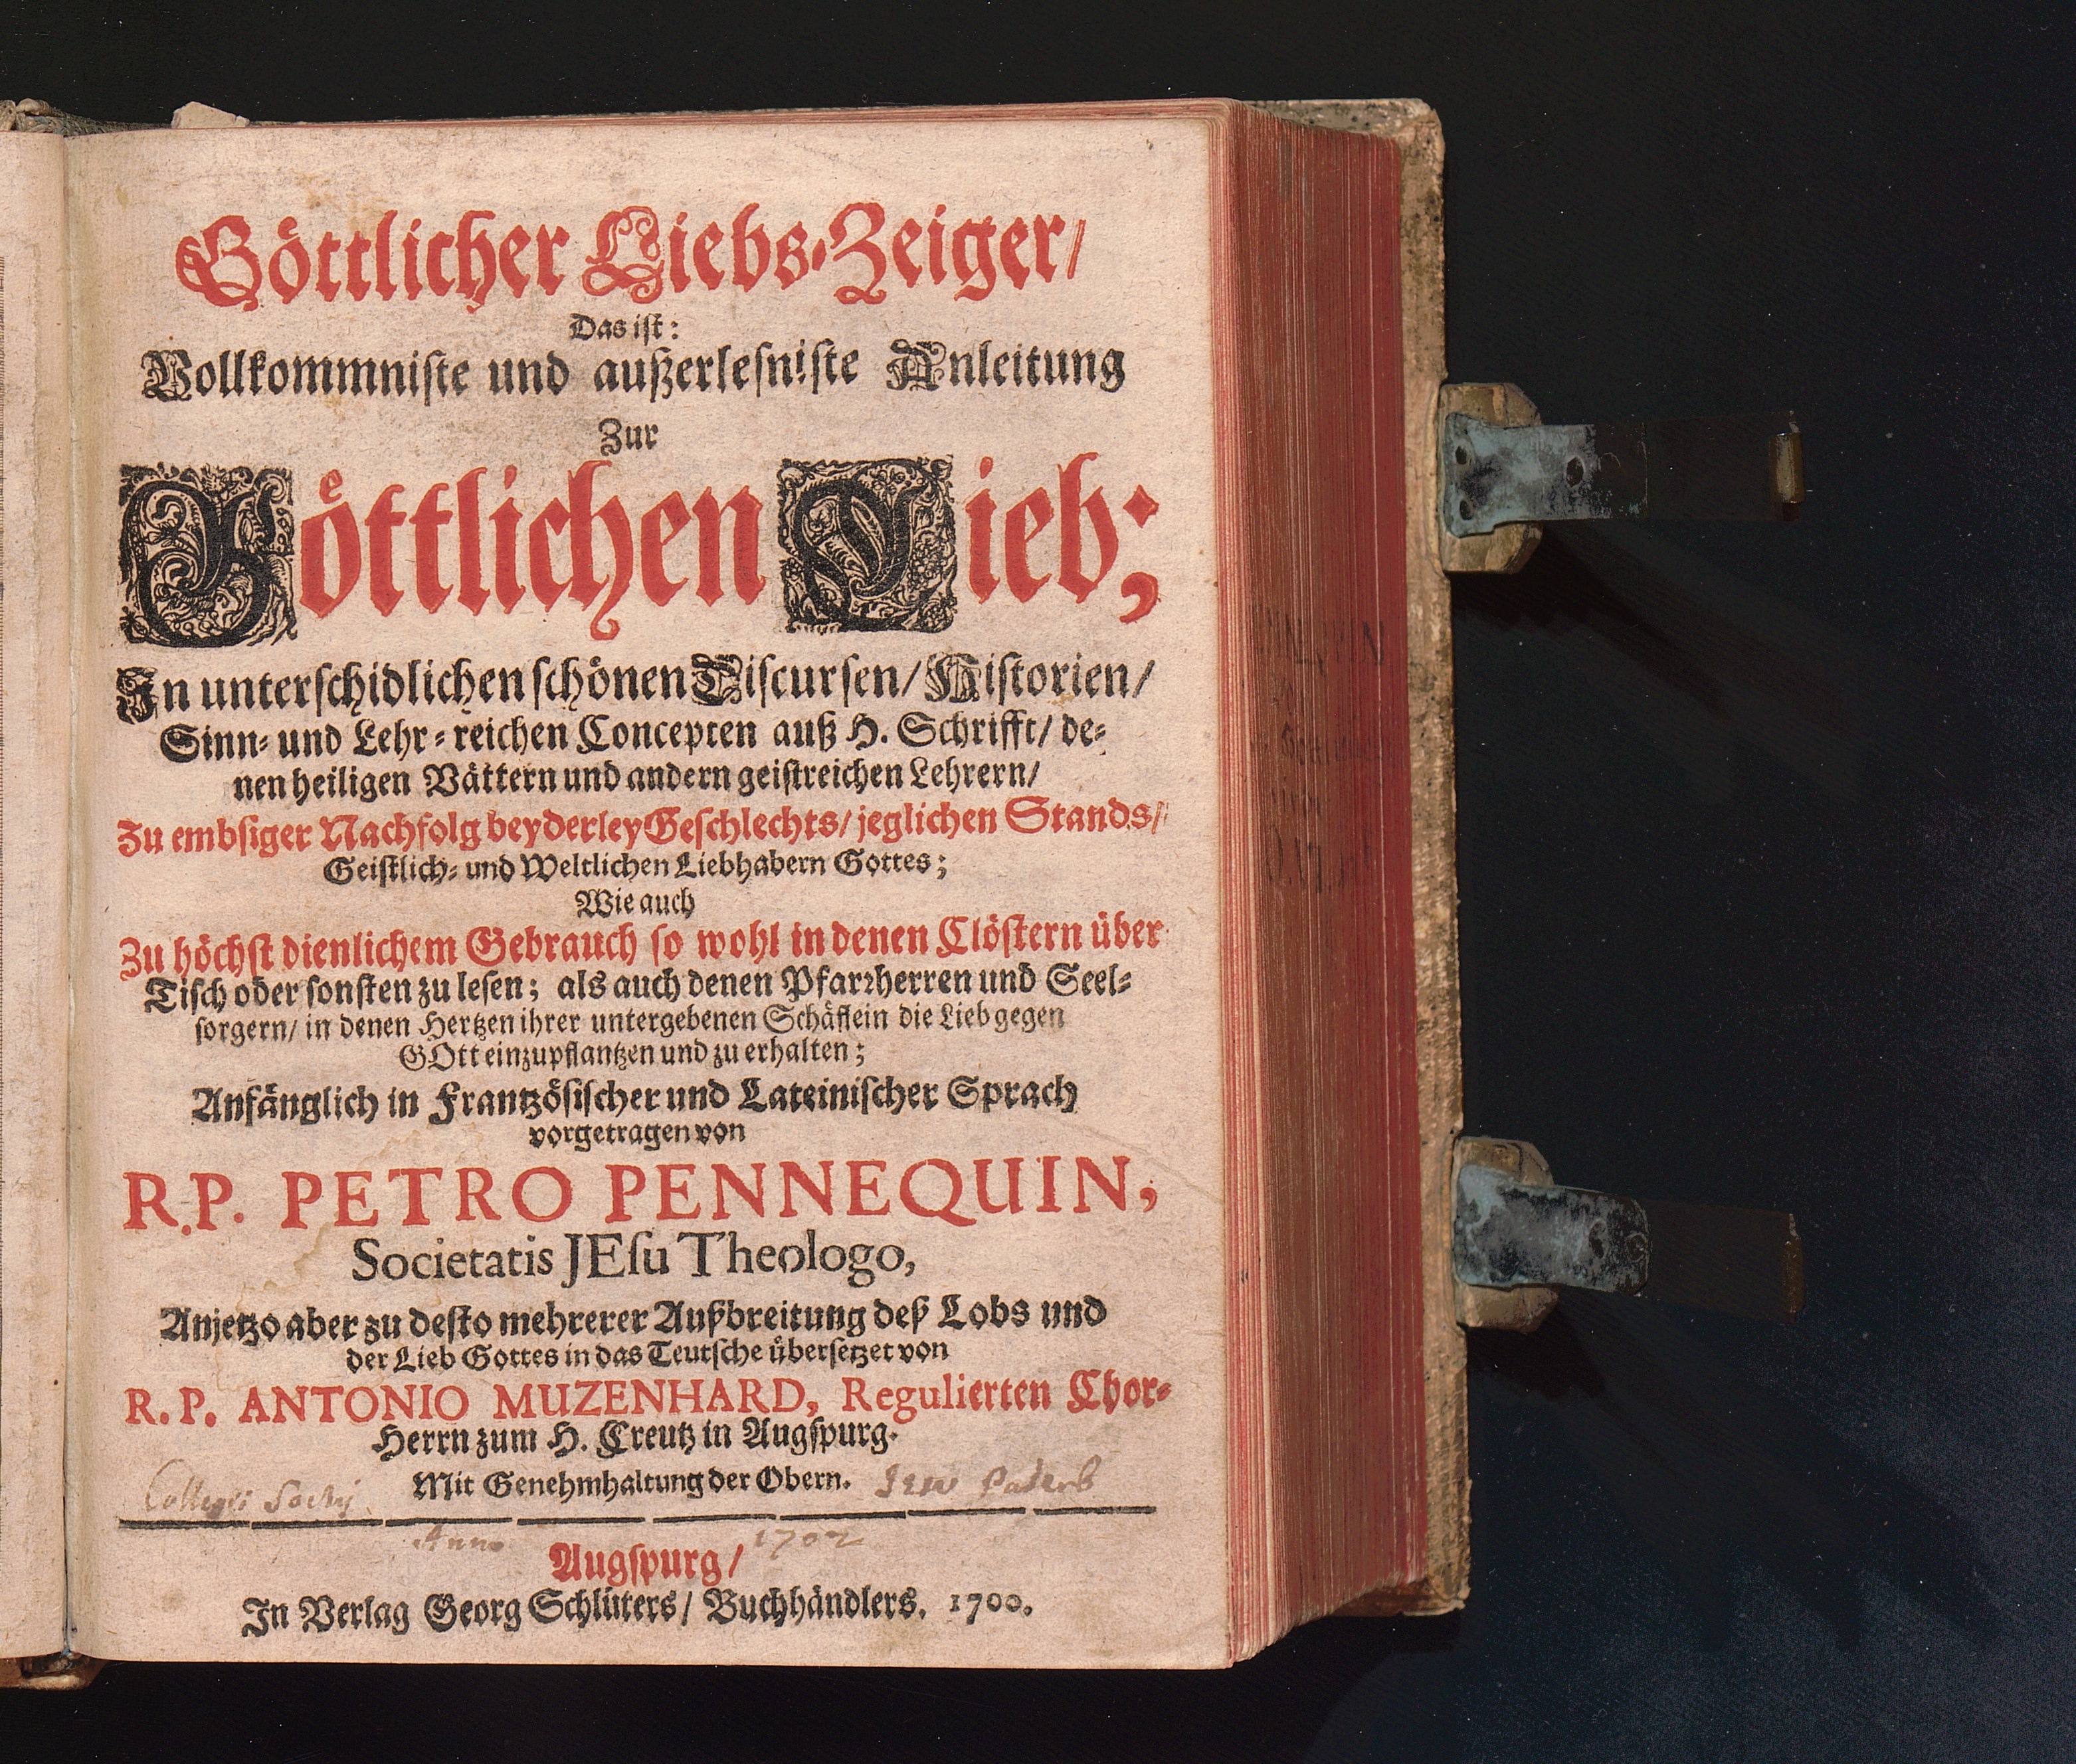 Göttlicher Liebs-Zeiger/
Das ist:
Vollkommniste und außerlesniste Anleitung
Zur
Göttlichen Lieb;
In unterschidlichen schönen Discursen/ Historien/
Sinn- und Lehr-reichen Concepten auß H. Schrifft/ de-
nen heiligen Vättern und andern geistreichen Lehrern/
Zu embsiger Nachfolg beyderley Geschlechts/ jeglichen Stands/
Geistlich- und Weltlichen Liebhabern Gottes;
Wie auch
Zu höchst dienlichem Gebrauch so wohl in denen Clöstern über
Tisch oder sonsten zu lesen; als auch denen Pfarrherren und Seel-
sorgern/ in denen Hertzen ihrer untergebenen Schäflein die Lieb gegen
GOtt einzupflantzen und zu erhalten;
Anfänglich in Frantzösischer und Lateinischer Sprach
vorgetragen von
R.P. PETRO PENNEQUIN,
Societatis JEsu Theologo,
Anjetzo aber zu desto mehrerer Außbreitung deß Lobs und
der Lieb Gottes in das Teutsche übersetzet von
R.P. ANTONIO MUZENHARD, Regulierten Chor-
Herrn zum H. Creutz in Augspurg.
Mit Genehmhaltung der Obern.
Collegii Paderb
Anno 1702
Augspurg/
In Verlag Georg Schlüters/ Buchhändlers. 1700.